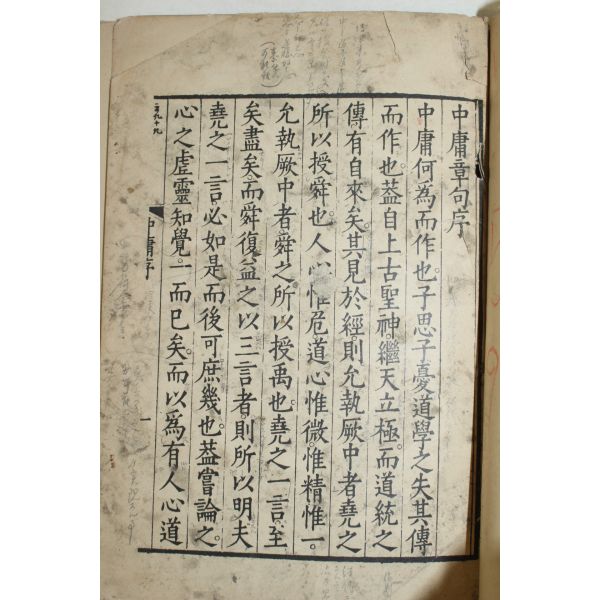 中庸章句序
中庸何為而作也。子思子憂道學之失其傳
而作也。蓋自上古聖神。繼天立極。而道統之
傳有自來矣。其見於經。則允執厥中者。堯之
所以授舜也。人心惟危。道心惟微。惟精惟一。
允執厥中者。舜之所以授禹也。堯之一言。至
矣盡矣。而舜復益之以三言者。則所以明夫
堯之一言。必如是而後可庶幾也。蓋嘗論之。
心之虛靈知覺。一而已矣。而以為有人心道
中庸序
一